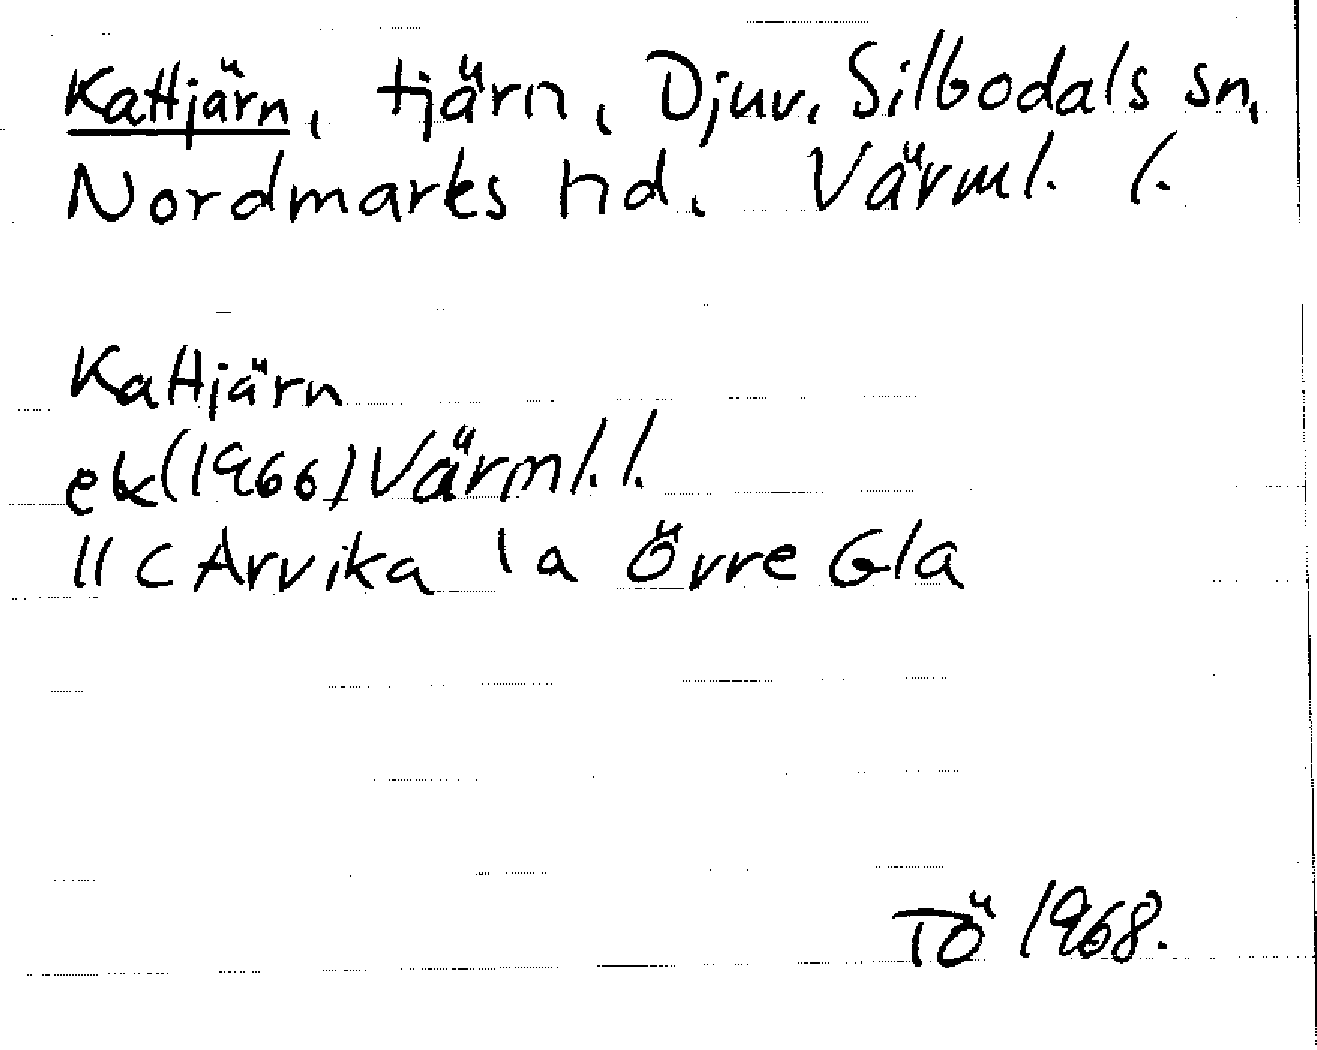 Kattjärn, tjärn, Djuv, Silbodals sn,
Nordmarks hd. Värml. l.
Kattjärn
ek(1966) Värml. l.
11 C Arvika 1 a Övre Gla
TÖ 1968.